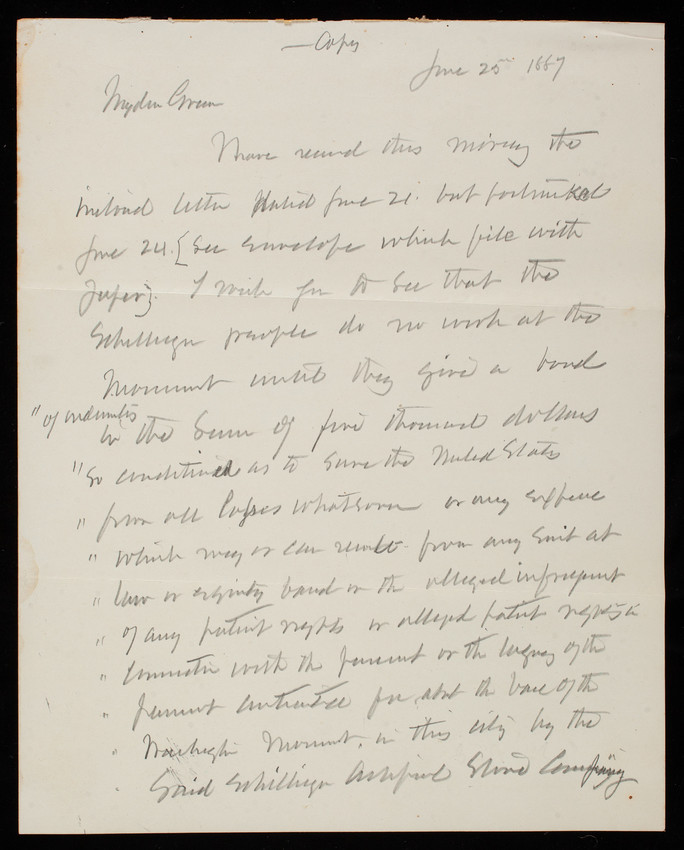 — Copy
June 25th 1887
My dear Green
I have received this morning the
inclosed letter dated June 21. but postmarked
June 24. [See envelope which file with
paper]. I wish you to see that the
Schillinger people do no work at the
Monument until they give a bond
" of indemnity
in the sum of five thousand dollars
" so conditioned as to save the United States
" from all losses whatsoever or any expense
" which may or can result from any suit at
" law or equity based on the alleged infringement
" of any patent rights or alleged patent rights in
" connection with the pavement or the laying of the
" pavement contracted for about the base of the
" Washington Monument, in this city by the
" said Schillinger Artificial Stone Company"